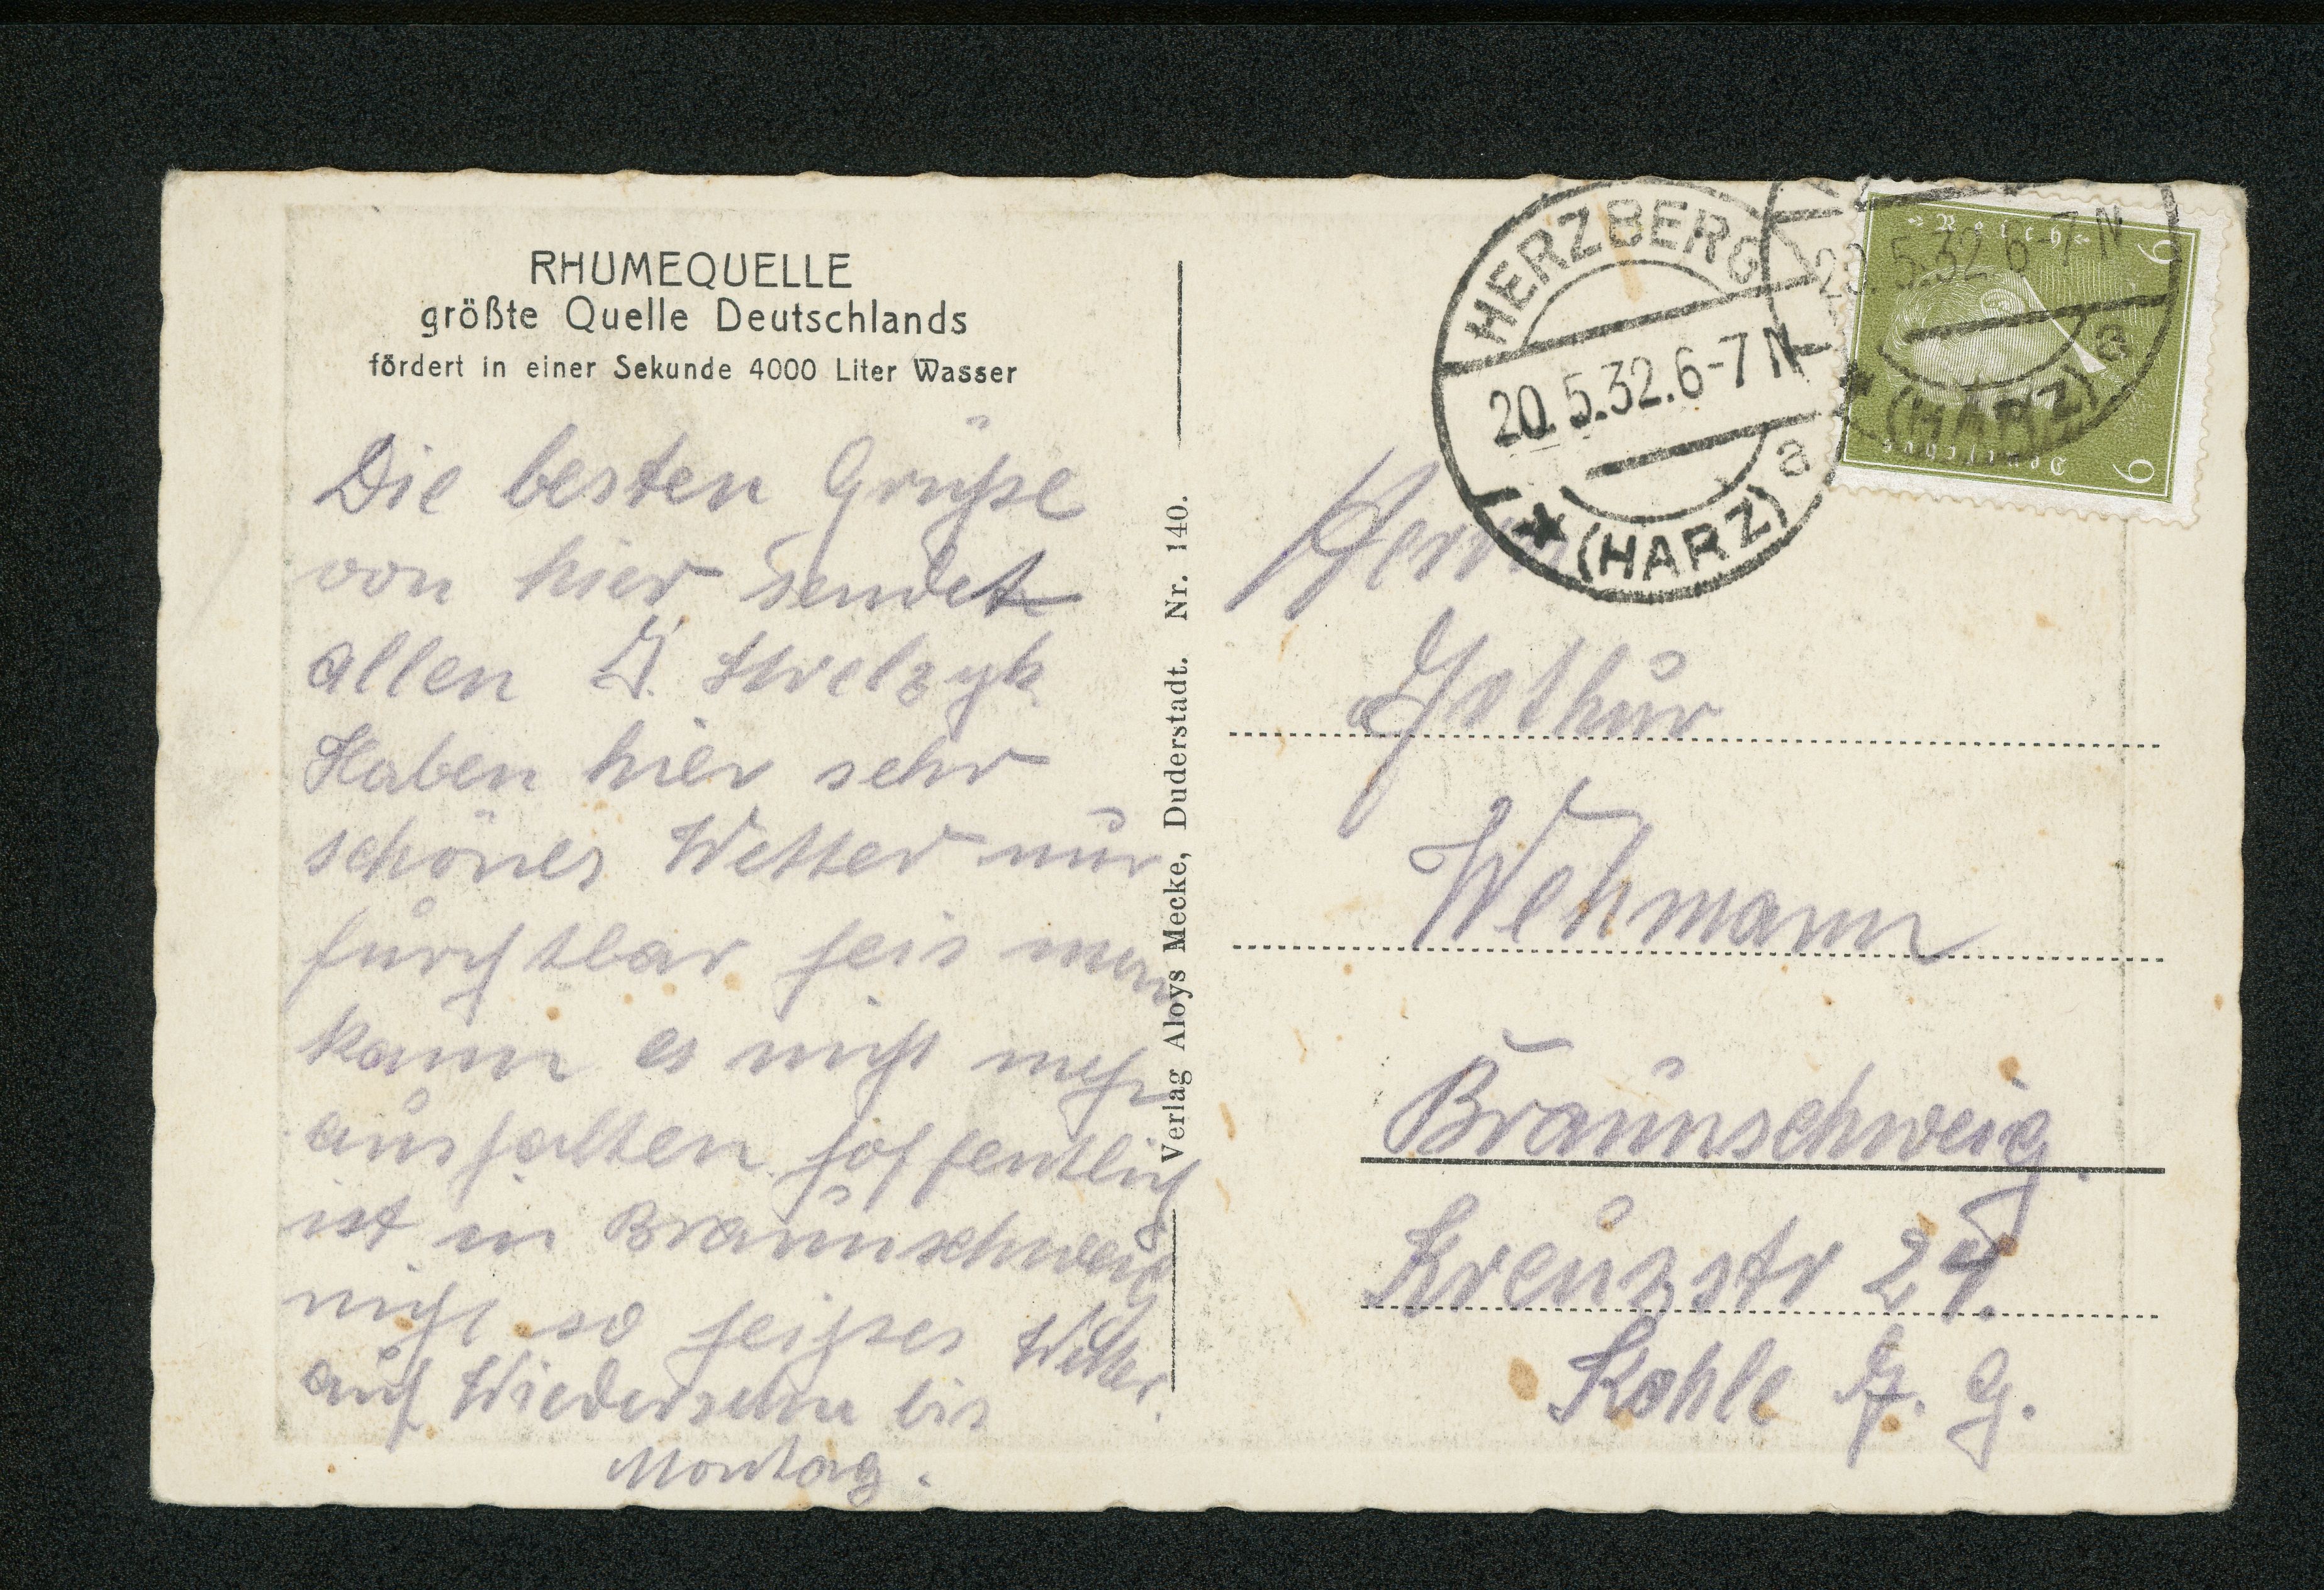 RHUMEQUELLE
größte Quelle Deutschlands
fördert in einer Sekunde 4000 Liter Wasser
Die besten Grüße
von hier sendet
allen Strelzyk
Haben hier sehr
schönes Wetter nur
furchtbar heis man
kann es nicht mehr
aushalten hoffentlich
ist in Braunschweig
nicht so heißes Wetter.
auf Wiedersehn bis
Montag.
Verlag Aloys Mecke, Duderstadt. Nr. 140.
HERZBERG
20.5.32.6-7 N
a
(HARZ)
20.5.32 6-7 N
a
(HARZ)
Deutsches
Reich
6 6
Herrn
Wehmann
Braunschweig.
Kreuzstr 24.
Kohle G.